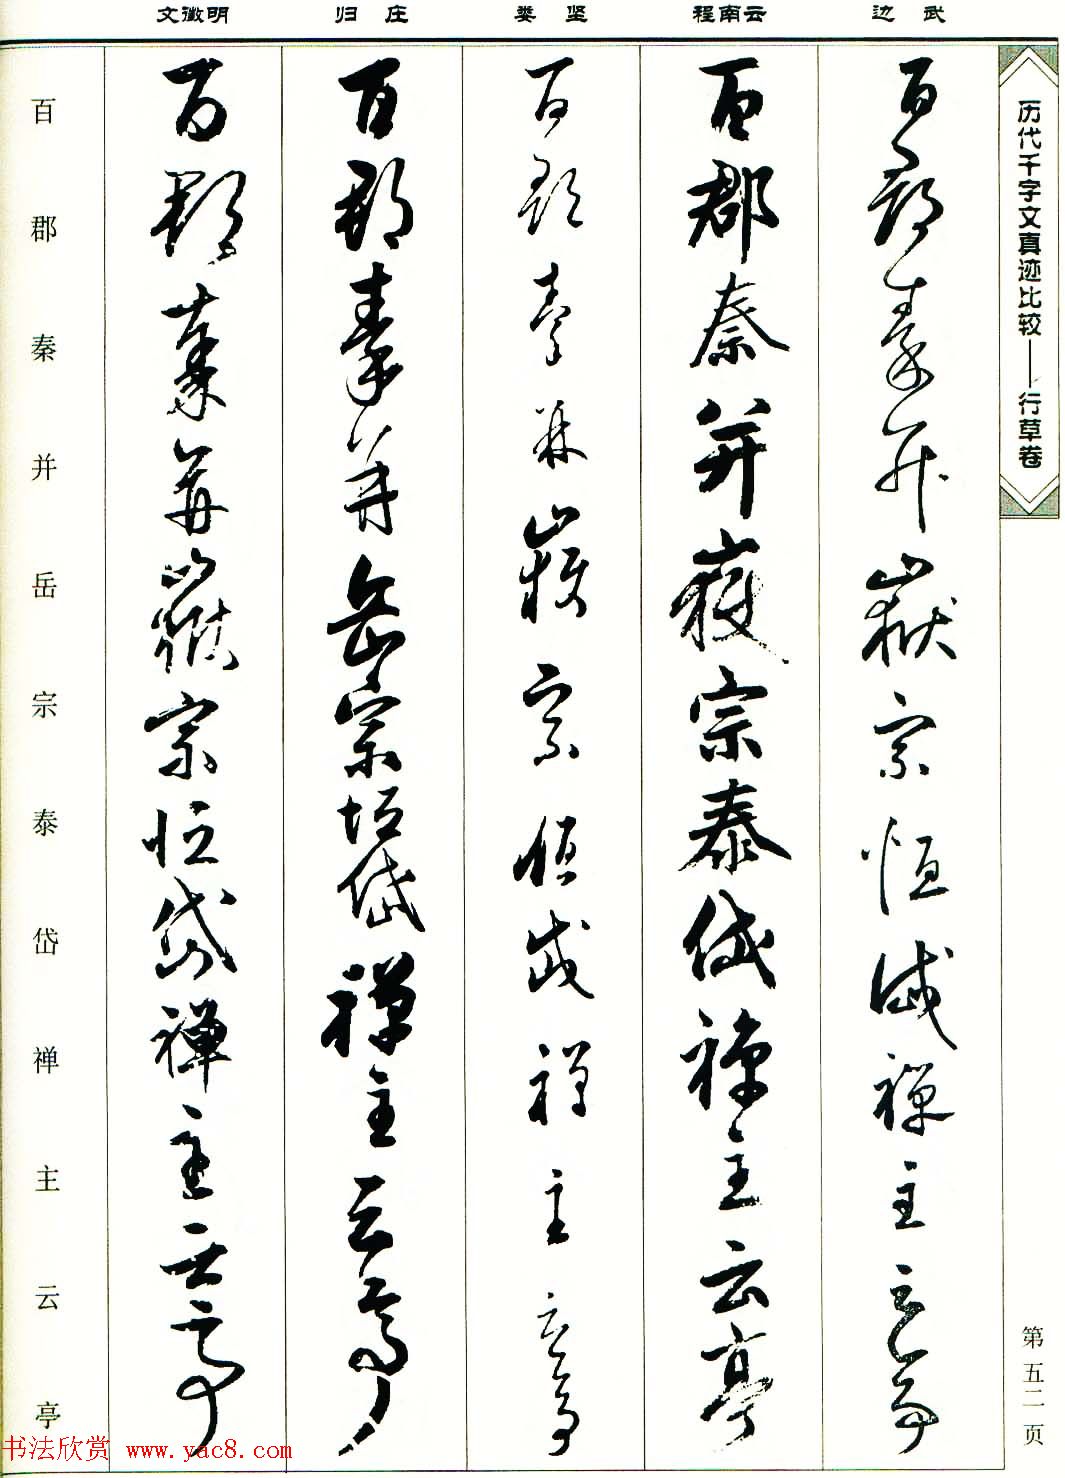 历代千字文真迹比较——行草卷
第五二页
边武
百郡秦并嶽宗恒岱禪主云亭
程南云
百郡秦并嶽宗泰岱禪主云亭
娄坚
百郡秦并嶽宗恒岱禪主云亭
归庄
百郡秦并岳宗恒岱禪主云亭
文徵明
百郡秦并嶽宗恒岱禪主云亭
百郡秦并岳宗泰岱禅主云亭
书法欣赏 www.yac8.com